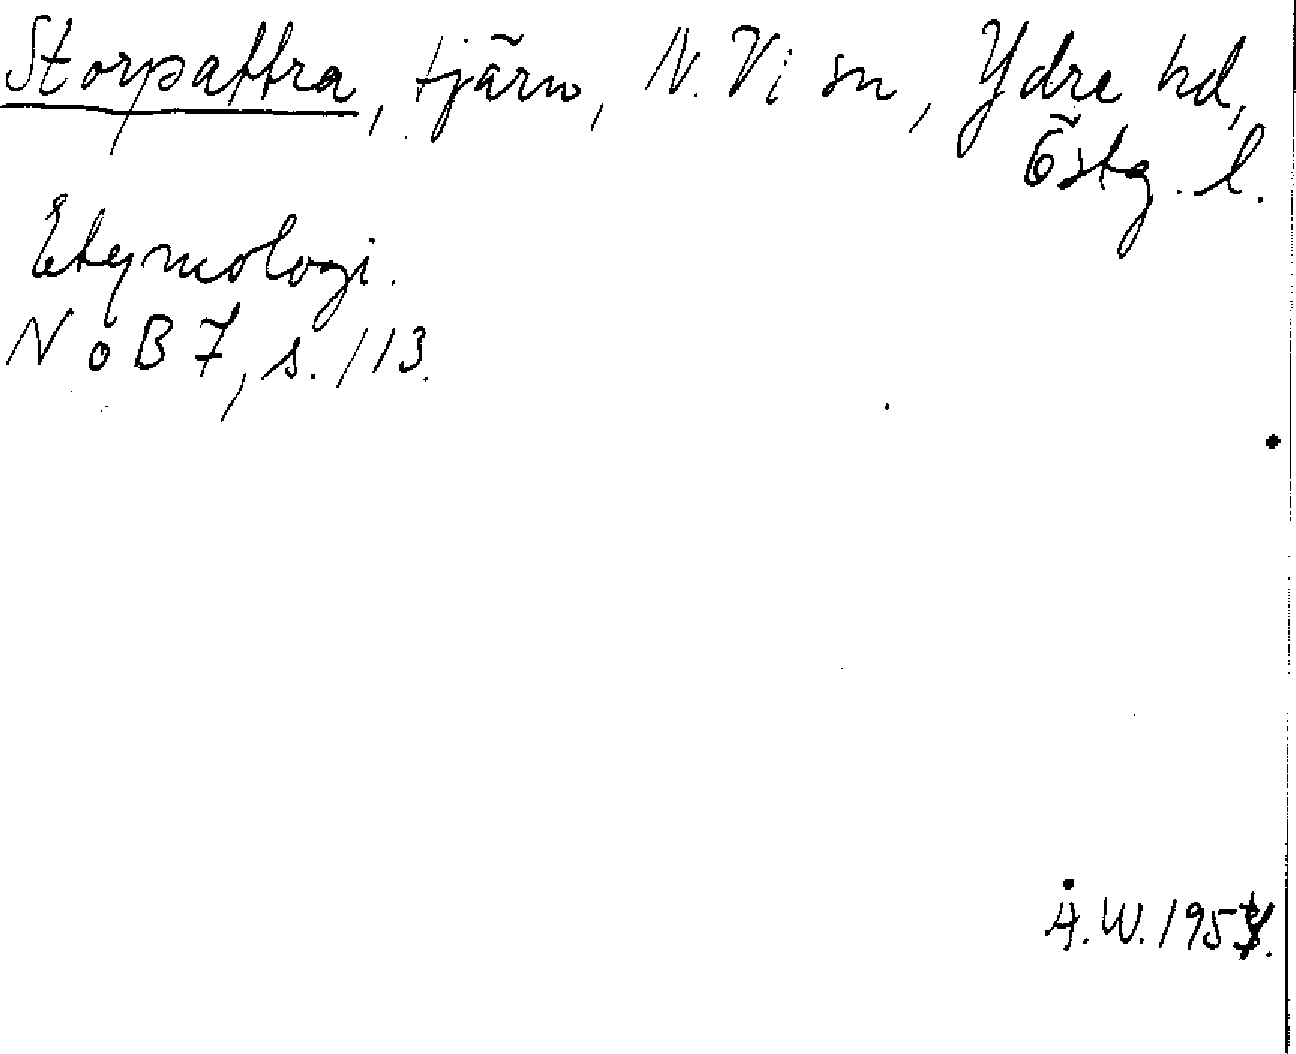 Storpattra, tjärn, N. Vi sn, Ydre hd,
Östg. l.
Etymologi.
NoB 7, s. 113.
Å.W.